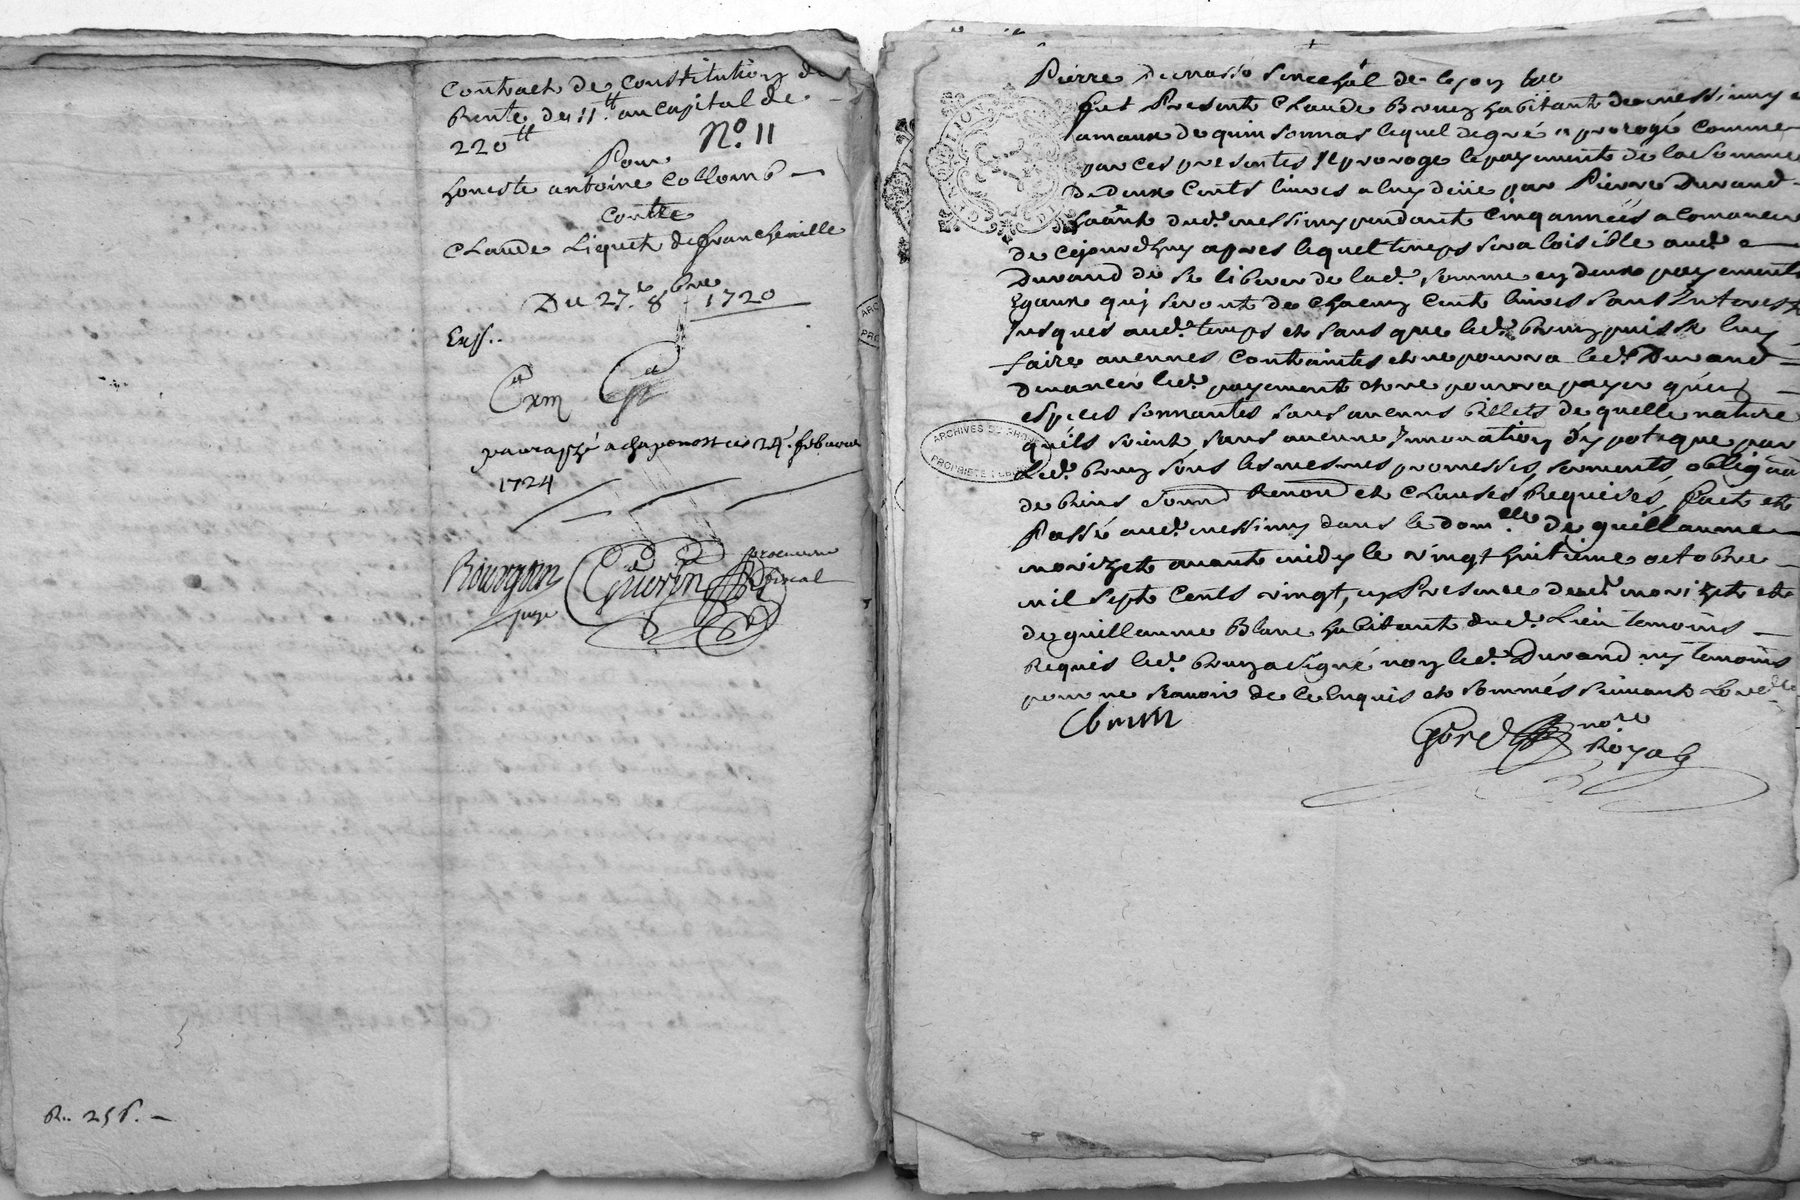 Contract de Constitution de
Rente de 11.tt au Capital de
220tt
No. 11
Pour
honeste antoine Collomb
Contre
Claude Liquet de francheuille
Du 27.e 8bre 1720
Exp..
paraphé a chaponost ce 24e. feburier
1724
Bourgoin
juge
Guerin procureur
fiscal
R.. 25s.
Pierre Sencehal de Lyon
fut Present Claude Brun habitant de messimy
amaux de quinsonnas lequel de gré a prorogé comme
par ces presentes Il proroge le payement de la somme
de deux Cents liures a luy deüe par Pierre Durand
haânt dud. messimy pendant Cinq années a comancer
de Cejourdhuy apres lequel temps sera loisible aud.
Durand de se liberer de lad. somme en deux payements
Egaux qui seront de Chacun Cent liures sans Interest
Jusques aud. temps et sans que led. brun puisse luy
faire aucunes Contraintes et ne pourra led. Durand
deuancer led. payement et ne pourra payer qu'en
especes sonnantes sans aucuns billets de quelle nature
quils soient, sans aucune Jnnouation d'ypoteque par
Led. brun sous les mesmes promesses, serments, obligaôn
de biens soumô Renonô et Clauses Requises, fait et
Passé aud. messimy dans le dom.elle de guillaume
morizet auant midy le vingt huitieme octobre
mil sept Cents vingt, en Presence dud. morizet et
de guillaume Blanc habitant dud. Lieu temoins
Requis led. brun a signé non led. Durand ny temoins
pour ne scauoir de ce Enquis et sommés suiuant Lord.
ARCHIVES DU RHONE
PROPRIETE PUBLIQUE
Cbrun
nore
Royal